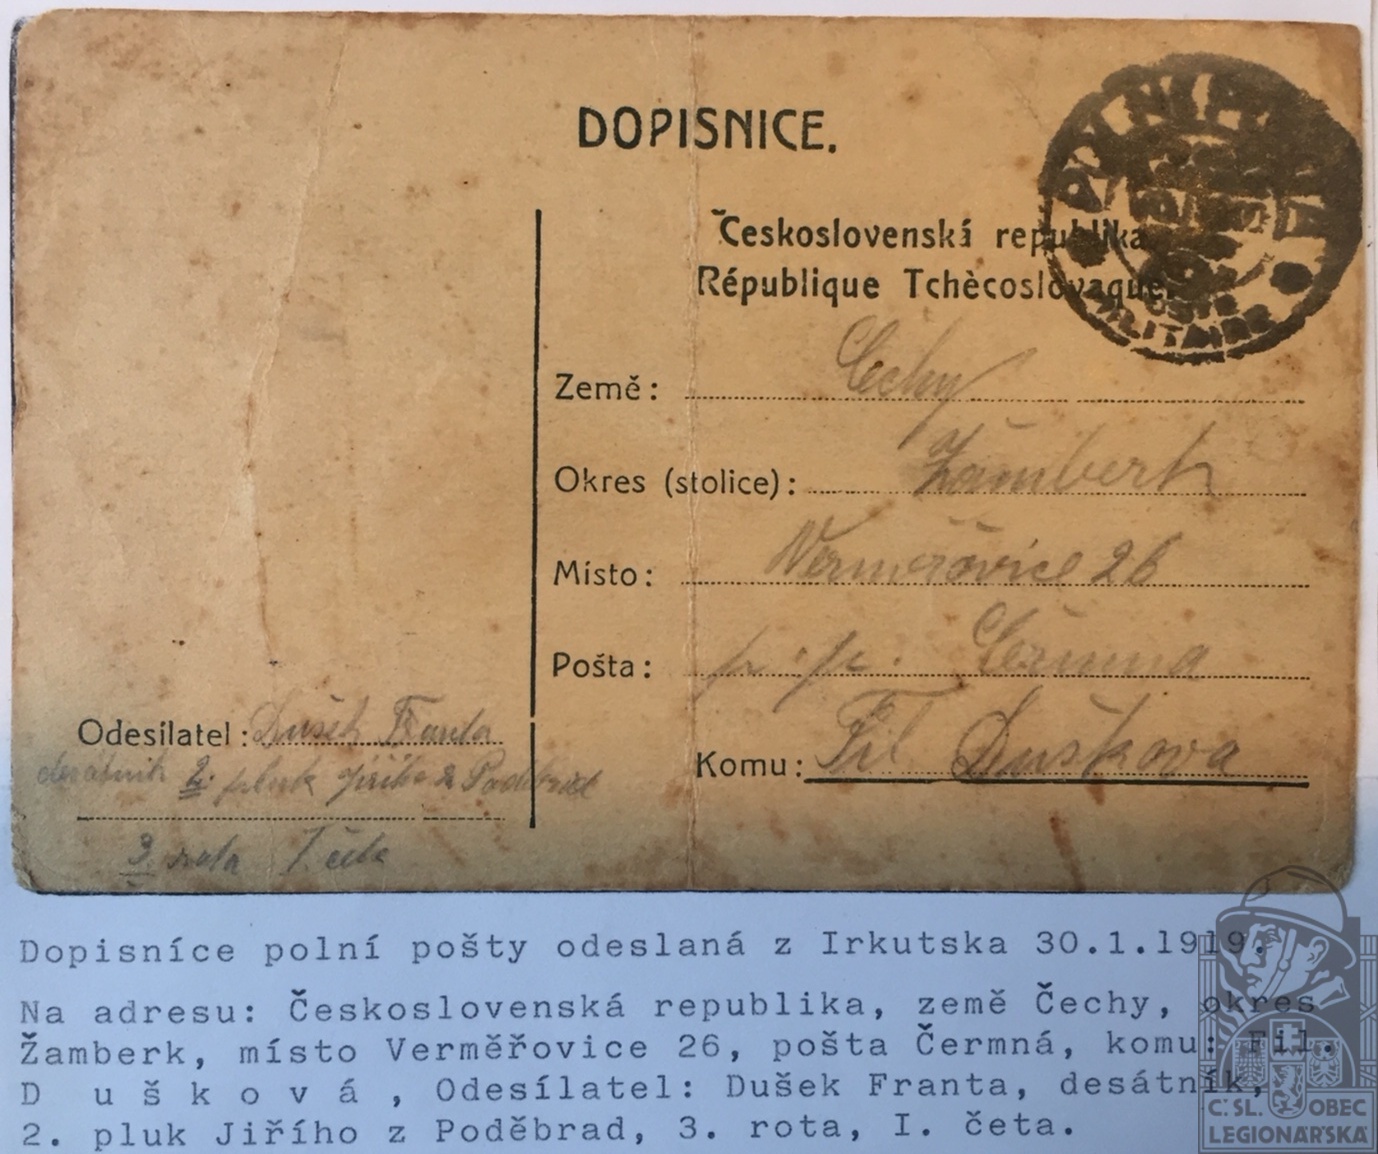 DOPISNICE.
Československá republika
République Tchècoslovaque
POSTE
MILITAIRE
Země: Čechy
Okres (stolice): Žamberk
Místo: Verměřovice 26
Pošta: p. p. Čermná
Komu: Fil Duškova
Odesílatel: Dušek Franta
desátník 2. pluk Jiřího z Poděbrad
3 rota I četa
Dopisníce polní pošty odeslaná z Irkutska 30.1.1919.
Na adresu: Československá republika, země Čechy, okres
Žamberk, místo Verměřovice 26, pošta Čermná, komu: Fil.
D u š k o v á , Odesílatel: Dušek Franta, desátník,
2. pluk Jiřího z Poděbrad, 3. rota, I. četa.
Č. SL. OBEC
LEGIONÁŘSKÁ